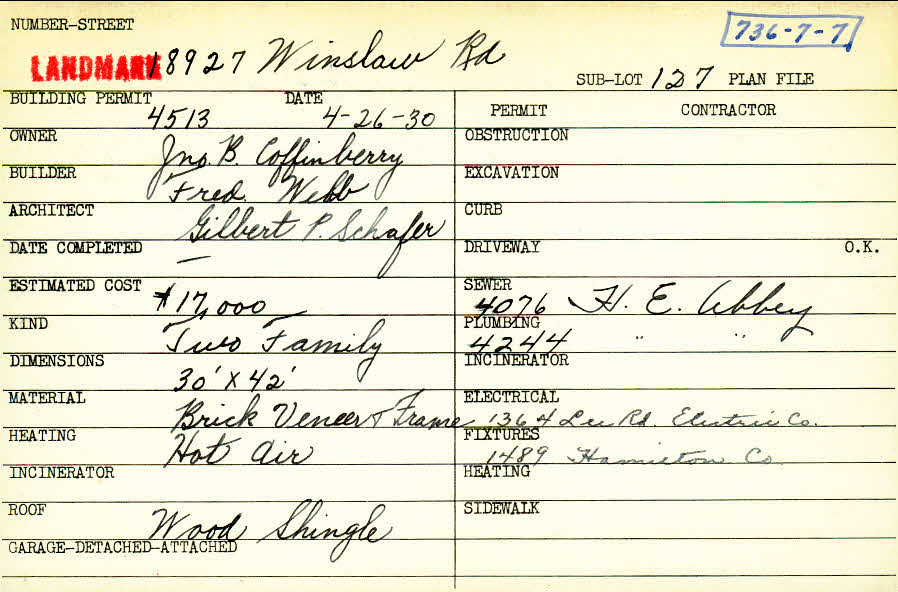 NUMBER-STREET
736-7-7
LANDMARK 18927 Winslow Rd
SUB-LOT 127 PLAN FILE
BUILDING PERMIT 4513 DATE 4-26-30
OWNER Jno. B. Coffinberry
BUILDER Fred. Webb
ARCHITECT Gilbert P. Schafer
DATE COMPLETED —
ESTIMATED COST $17,000
KIND Two Family
DIMENSIONS 30' X 42'
MATERIAL Brick Veneer & Frame
HEATING Hot Air
INCINERATOR
ROOF Wood Shingle
GARAGE-DETACHED-ATTACHED
PERMIT CONTRACTOR
OBSTRUCTION
EXCAVATION
CURB
DRIVEWAY O.K.
SEWER 4076 H. E. Abbey
PLUMBING 4244 " "
INCINERATOR
ELECTRICAL 1364 Lee Rd Electric Co.
FIXTURES 1489 Hamilton Co
HEATING
SIDEWALK